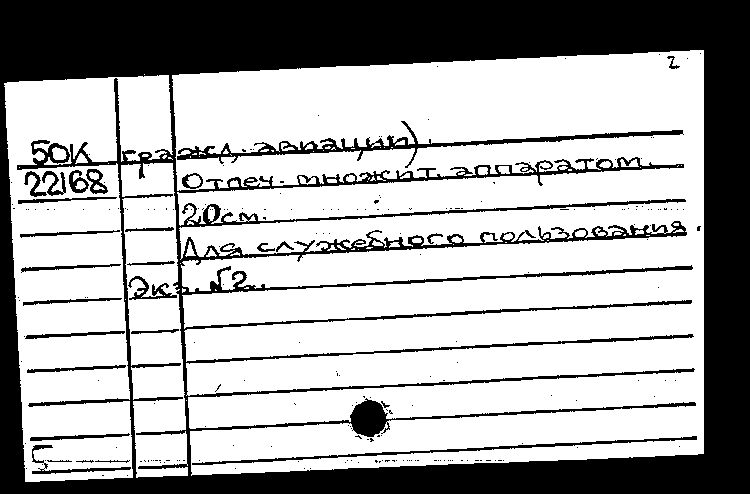 2
50К гражд. авиации).
22168 Отпеч. множит. аппаратом.
20см.
Для служебного пользования.
Экз. №2.
5